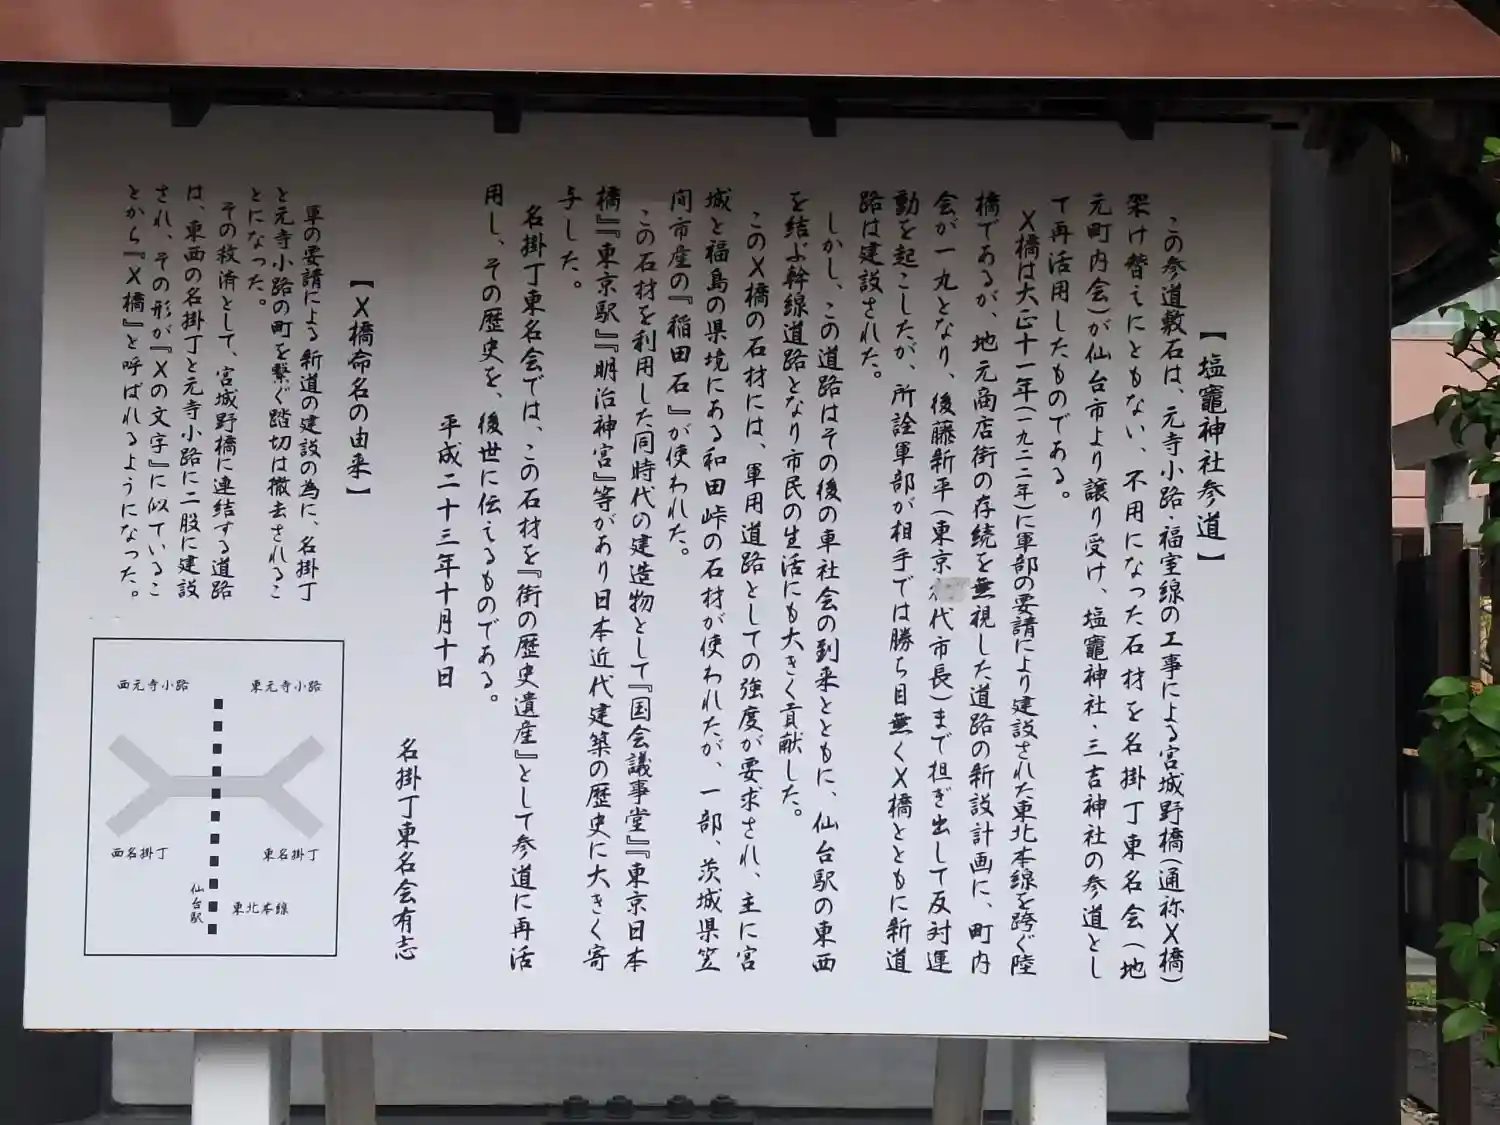 【塩竈神社参道】
この参道敷石は、元寺小路・福室線の工事による宮城野橋(通称X橋)
架け替えにともない、不用になった石材を名掛丁東名会(地
元町内会)が仙台市より譲り受け、塩竈神社・三吉神社の参道とし
て再活用したものである。
X橋は大正十一年(一九二二年)に軍部の要請により建設された東北本線を跨ぐ陸
橋であるが、地元商店街の存続を無視した道路の新設計画に、町内
会が一丸となり、後藤新平(東京 代市長)まで担ぎ出して反対運
動を起こしたが、所詮軍部が相手では勝ち目無くX橋とともに新道
路は建設された。
しかし、この道路はその後の車社会の到来とともに、仙台駅の東西
を結ぶ幹線道路となり市民の生活にも大きく貢献した。
このX橋の石材には、軍用道路としての強度が要求され、主に宮
城と福島の県境にある和田峠の石材が使われたが、一部、茨城県笠
間市産の『稲田石』が使われた。
この石材を利用した同時代の建造物として『国会議事堂』『東京日本
橋』『東京駅』『明治神宮』等があり日本近代建築の歴史に大きく寄
与した。
名掛丁東名会では、この石材を『街の歴史遺産』として参道に再活
用し、その歴史を、後世に伝えるものである。
平成二十三年十月十日
名掛丁東名会有志
【X橋命名の由来】
軍の要請による新道の建設の為に、名掛丁
と元寺小路の町を繋ぐ踏切は撤去されるこ
とになった。
その救済として、宮城野橋に連結する道路
は、東西の名掛丁と元寺小路に二股に建設
され、その形が『Xの文字』に似ているこ
とから『X橋』と呼ばれるようになった。
西元寺小路
東元寺小路
西名掛丁
東名掛丁
仙台駅
東北本線